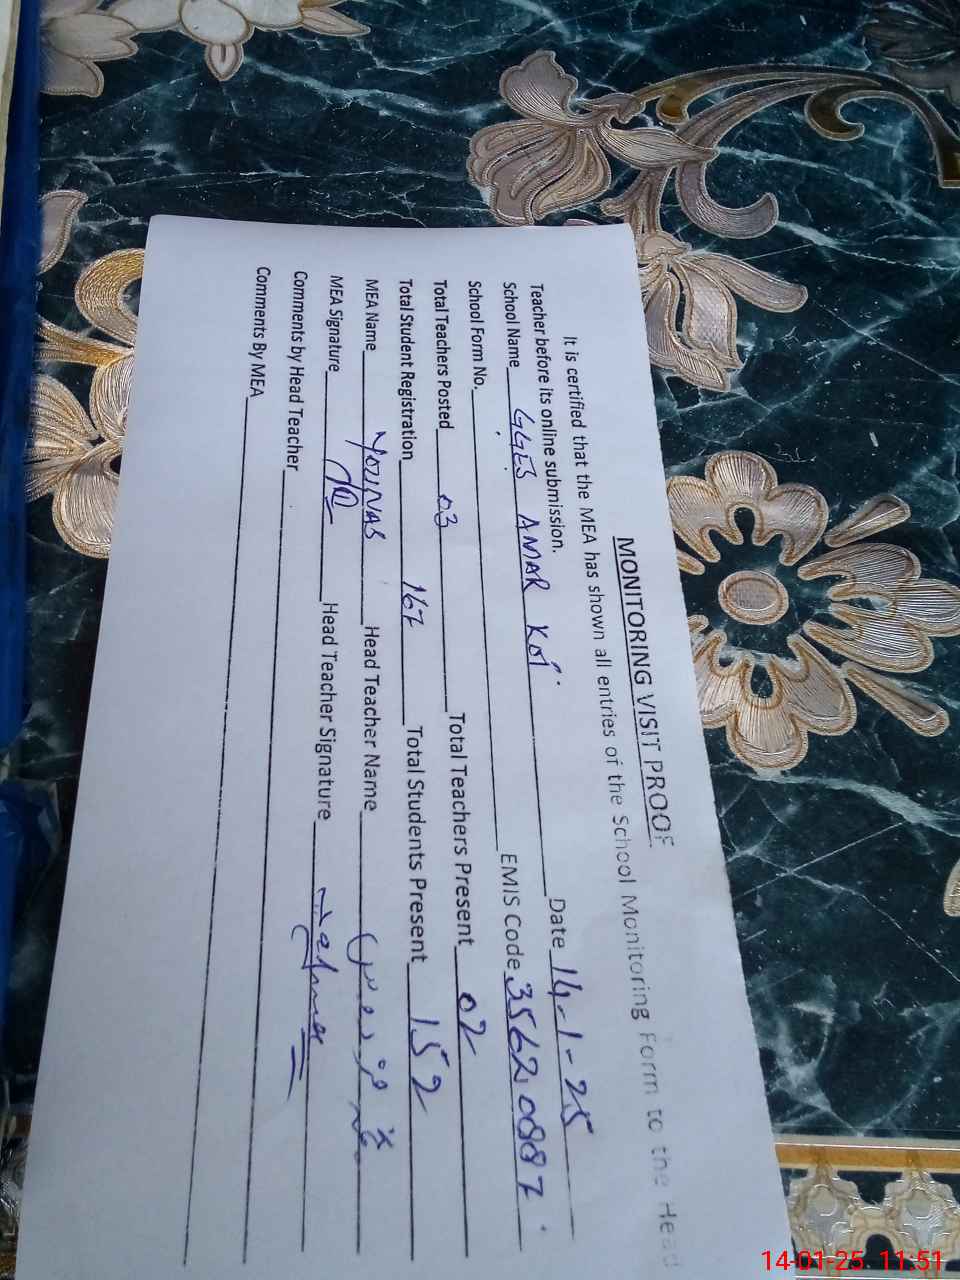 MONITORING VISIT PROOF
It is certified that the MEA has shown all entries of the School Monitoring Form to the Head
Teacher before its online submission.
School Name GGES AMAR KOT Date 14-1-25
School Form No. EMIS Code 35620887
Total Teachers Posted 03 Total Teachers Present 02
Total Student Registration 167 Total Students Present 152
MEA Name YOUNAS Head Teacher Name
MEA Signature Head Teacher Signature
Comments by Head Teacher
Comments By MEA
14-01-25 11:51